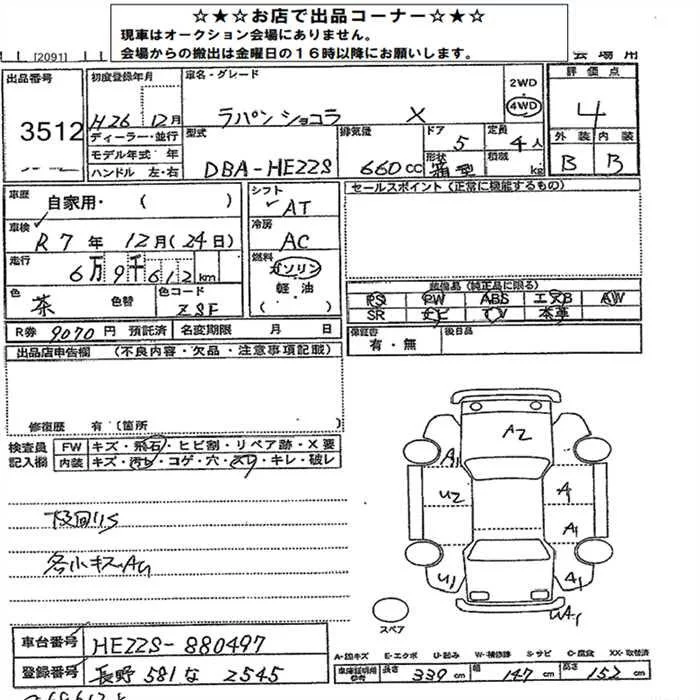 ☆★☆お店で出品コーナー☆★☆
現車はオークション会場にありません。
会場からの搬出は金曜日の16時以降にお願いします。
[2091]
出品番号 初度登録年月 車名・グレード 評価点
3512 H26 12月 ラパン ショコラ X 2WD 4WD 4
ディーラー・並行 型式 排気量 ドア 定員 外装 内装
モデル年式 年 5 4人 B B
ハンドル 左・右 DBA-HE22S 660cc 形状 箱型 積載 kg
車歴 自家用・( ) シフト AT セールスポイント (正常に機能するもの)
車検 R7年 12月(24日) 冷房 AC
走行 6万9千612km 燃料 ガソリン
軽・油
( )
色 茶 色替 色コード ZSF
装備品 (純正品に限る)
PS PW ABS エアB AW
SR ナビ TV 本革
R券 9070円 預託済 名変期限 月 日
保証書 有・無 後日品
出品店申告欄 (不良内容・欠品・注意事項記載)
修復歴 有 (箇所 )
検査員記入欄 FW キズ・飛石・ヒビ割・リペア跡・X要
内装 キズ・汚れ・コゲ・穴・スレ・キレ・破レ
下回りS
各小キズAU
A2
A1
U2 A1
A1
U1 A1
スペア
車台番号 HE22S-880497
登録番号 長野 581 な 2545
A-線キズ E-エクボ U-凹み W-補修跡 S-サビ C-腐食 XX-取替済
長さ 339cm 幅 147cm 高さ 152cm